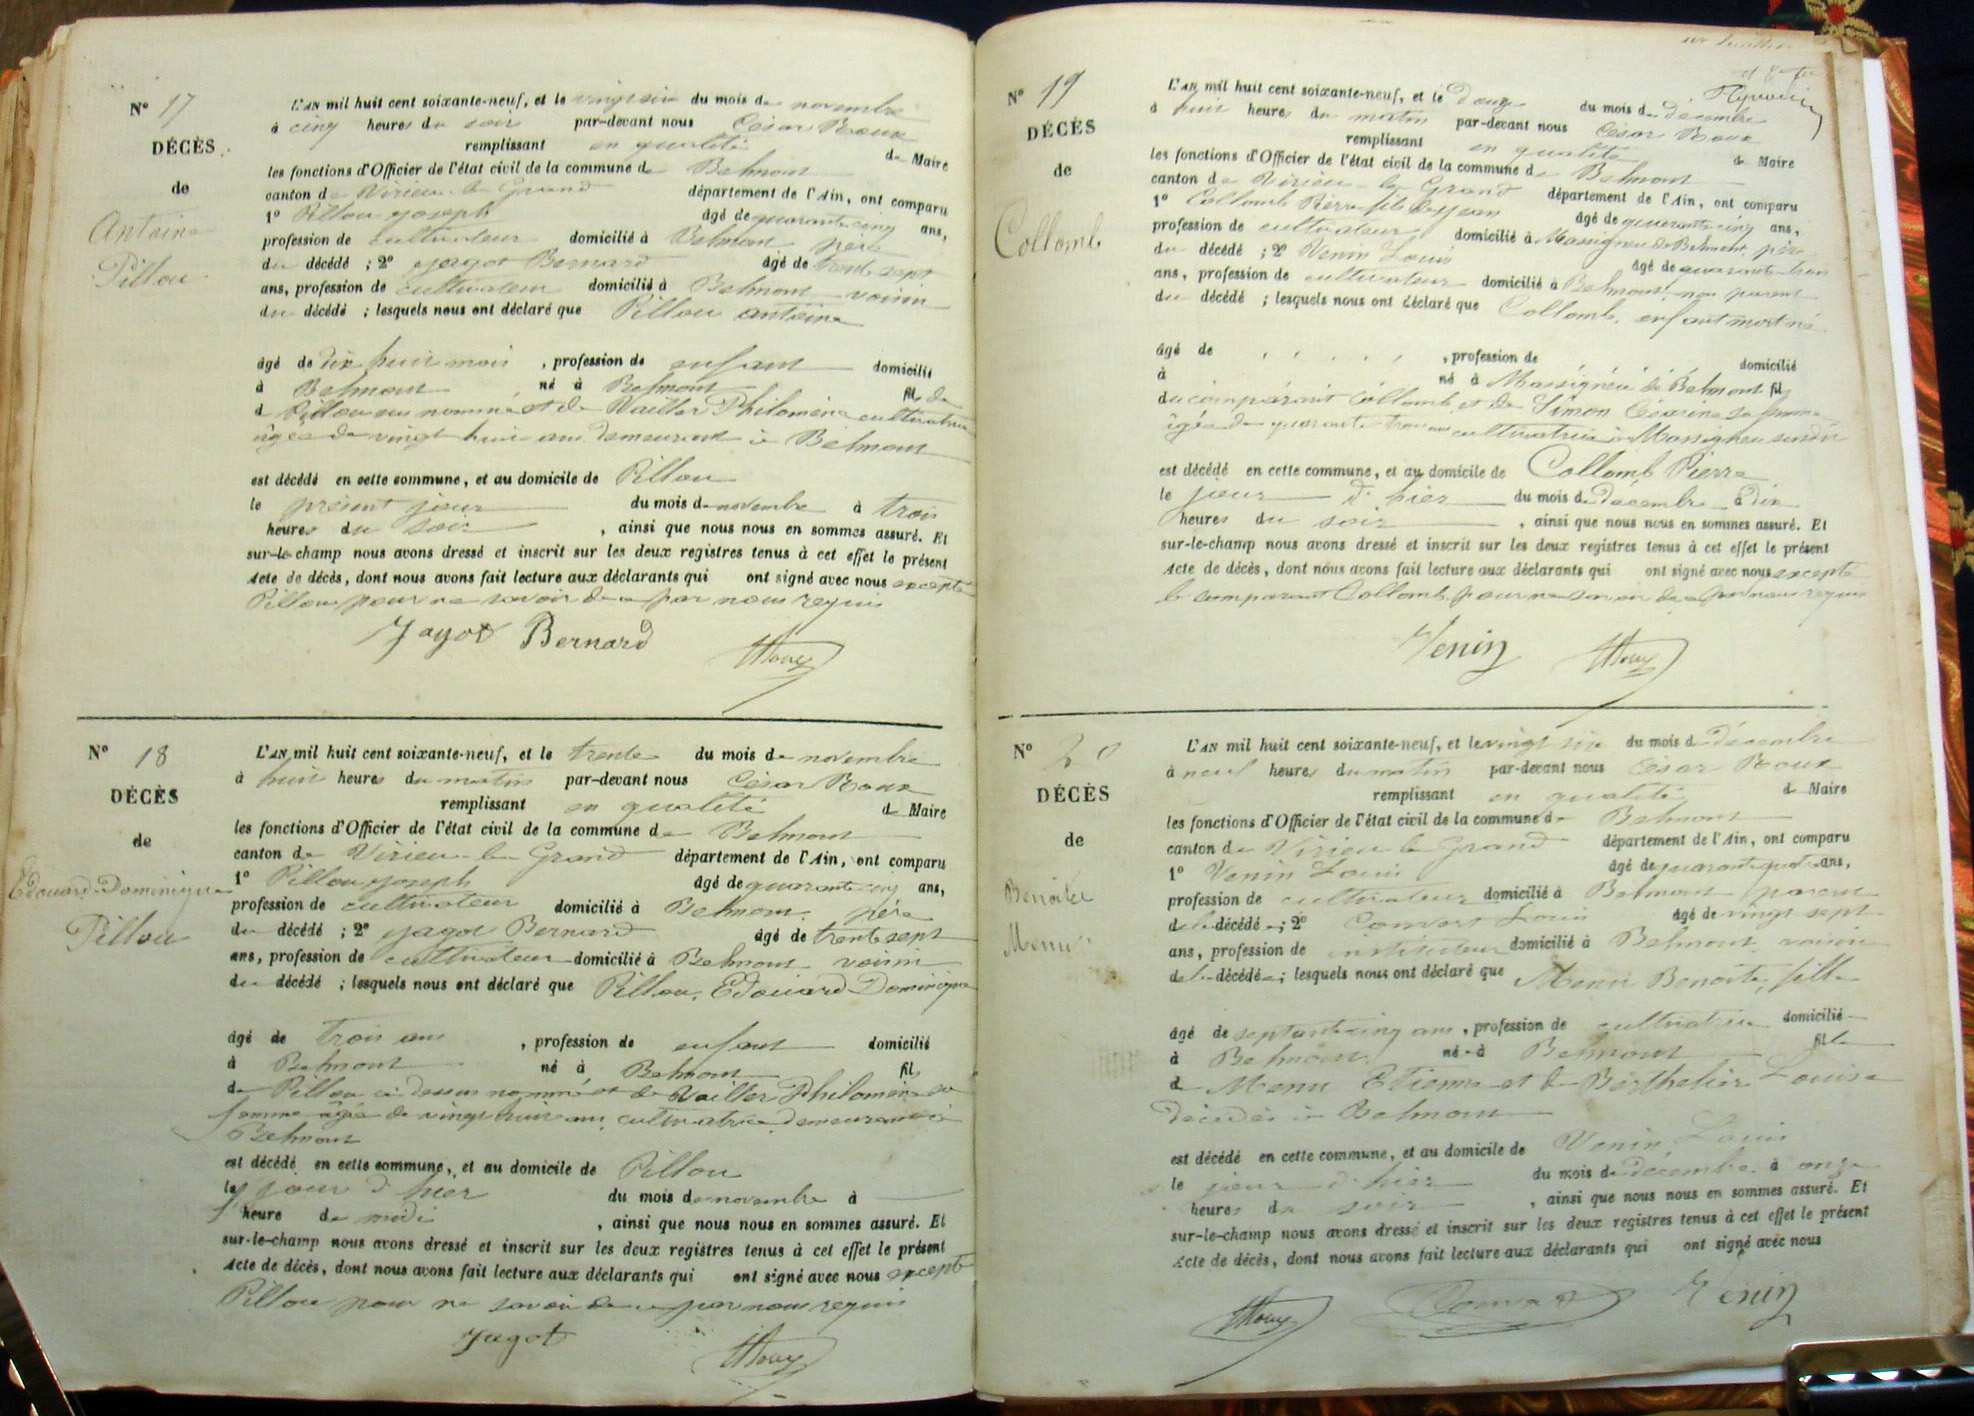 N° 17
DÉCÈS
de
Antoine
Pillou
L'AN mil huit cent soixante-neuf, et le vingt six du mois de novembre
à cinq heures du soir par-devant nous César Roux
remplissant en qualité de Maire
les fonctions d'Officier de l'état civil de la commune de Belmont
canton de Virieu-le-Grand département de l'Ain, ont comparu
1° Pillou joseph âgé de quarante cinq ans,
profession de cultivateur domicilié à Belmont père
du décédé ; 2° Jagot Bernard âgé de trente sept
ans, profession de cultivateur domicilié à Belmont voisin
du décédé ; lesquels nous ont déclaré que Pillou antoine
âgé de dix huit mois , profession de enfant domicilié
à Belmont né à Belmont fils de
d Pillou sus nommé et de Vailler Philomène cultivatrice
âgée de vingt huit ans demeurant à Belmont
est décédé en cette commune, et au domicile de Pillou
le présent jour du mois de novembre à trois
heures du soir , ainsi que nous nous en sommes assuré. Et
sur-le-champ nous avons dressé et inscrit sur les deux registres tenus à cet effet le présent
Acte de décès, dont nous avons fait lecture aux déclarants qui ont signé avec nous excepté
Pillou pour ne savoir de ce par nous requis
Jagot Bernard CRoux
N° 18
DÉCÈS
de
Edouard-Dominique
Pillou
L'AN mil huit cent soixante-neuf, et le trente du mois de novembre
à huit heures du matin par-devant nous César Roux
remplissant en qualité de Maire
les fonctions d'Officier de l'état civil de la commune de Belmont
canton de Virieu-le-Grand département de l'Ain, ont comparu
1° Pillou joseph âgé de quarante cinq ans,
profession de cultivateur domicilié à Belmont père
du décédé ; 2° Jagot Bernard âgé de trente sept
ans, profession de cultivateur domicilié à Belmont voisin
du décédé ; lesquels nous ont déclaré que Pillou, Edouard Dominique
âgé de trois ans , profession de enfant domicilié
à Belmont né à Belmont fils
de Pillou ci dessus nommé et de Vailler Philomène sa
femme âgée de vingt huit ans, cultivatrice demeurant à
Belmont
est décédé en cette commune, et au domicile de Pillou
le jour d'hier du mois de novembre à
heure de midi , ainsi que nous nous en sommes assuré. Et
sur-le-champ nous avons dressé et inscrit sur les deux registres tenus à cet effet le présent
Acte de décès, dont nous avons fait lecture aux déclarants qui ont signé avec nous excepté
Pillou pour ne savoir de ce par nous requis
Jagot CRoux
N° 19
DÉCÈS
de
Collomb
L'AN mil huit cent soixante-neuf, et le douze du mois de décembre
à huit heures du matin par-devant nous César Roux
remplissant en qualité de Maire
les fonctions d'Officier de l'état civil de la commune de Belmont
canton de Virieu-le-Grand département de l'Ain, ont comparu
1° Collomb Pierre fils de jean âgé de quarante cinq ans,
profession de cultivateur domicilié à Massignieu de Belmont, père
du décédé ; 2° Venin Louis âgé de quarante trois
ans, profession de cultivateur domicilié à Belmont, non parent
du décédé ; lesquels nous ont déclaré que Collomb, enfant mort né
âgé de , , , , , , profession de domicilié
à né à Massignieu de Belmont fils
du comparant Collomb et de Simon Césarine sa femme
âgée de quarante trois ans cultivatrice à Massignieu susdit
est décédé en cette commune, et au domicile de Collomb Pierre
le jour d'hier du mois de decembre à dix
heures du soir , ainsi que nous nous en sommes assuré. Et
sur-le-champ nous avons dressé et inscrit sur les deux registres tenus à cet effet le présent
Acte de décès, dont nous avons fait lecture aux déclarants qui ont signé avec nous excepté
le comparant Collomb pour ne savoir de ce par nous requis
Venin CRoux
N° 20
DÉCÈS
de
Benoite
Menu
L'AN mil huit cent soixante-neuf, et le vingt six du mois de décembre
à neuf heures du matin par-devant nous César Roux
remplissant en qualité de Maire
les fonctions d'Officier de l'état civil de la commune de Belmont
canton de Virieu le Grand département de l'Ain, ont comparu
1° Venin Louis âgé de quarante quatre ans,
profession de cultivateur domicilié à Belmont parent
de la décédée ; 2° Convert Louis âgé de vingt sept
ans, profession de instituteur domicilié à Belmont voisin
de la décédée ; lesquels nous ont déclaré que Menu Benoite, fille
âgé de septante cinq ans , profession de cultivatrice domicilié
à Belmont né à Belmont fille
d Menu Etienne et de Berthelier Louise
décédés à Belmont
est décédé en cette commune, et au domicile de Venin Louis
le jour d'hier du mois de décembre à onze
heures du soir , ainsi que nous nous en sommes assuré. Et
sur-le-champ nous avons dressé et inscrit sur les deux registres tenus à cet effet le présent
Acte de décès, dont nous avons fait lecture aux déclarants qui ont signé avec nous
CRoux Convert Venin